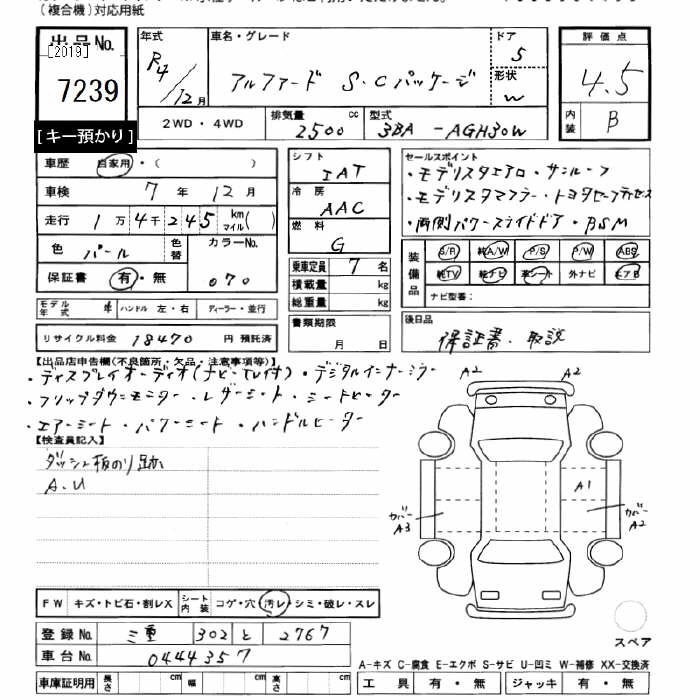 (複合機)対応用紙
出品No.
[2019]
7239
[キー預かり]
年式 R4/12月
車名・グレード アルファード S・Cパッケージ
ドア 5
形状 W
評価点 4.5
内装 B
2WD・4WD
排気量 2500 cc
型式 3BA-AGH30W
車歴 自家用・( )
車検 7年 12月
走行 1万4千245 km マイル( )
色 パール 色替 カラーNo. 070
保証書 有・無
モデル年式 年 ハンドル 左・右 ディーラー・並行
リサイクル料金 18470 円 預託済
シフト IAT
冷房 AAC
燃料 G
乗車定員 7 名
積載量 kg
総重量 kg
書類期限 月 日
セールスポイント
・モデリスタエアロ・サンルーフ
・モデリスタマフラー・トヨタセーフティセンス
・両側パワースライドドア・BSM
装備品 S/R 純A/W P/S P/W ABS
純TV 純ナビ 革シート 外ナビ エアB
ナビ型番:
後日品 保証書・取説
【出品店申告欄(不良箇所・欠品・注意事項等)】
・ディスプレイオーディオ(ナビ・TV付)・デジタルインナーミラー
・フリップダウンモニター・レザーシート・シートヒーター
・エアーシート・パワーシート・ハンドルヒーター
【検査員記入】
ダッシュ板のり跡
A.U
A2 A2
A1
カバー A3
カバー A2
スペア
FW キズ・トビ石・割レX シート内装 コゲ・穴・汚レ・シミ・破レ・スレ
登録No. 三重 302 と 2767
車台No. 0444357
車庫証明用 長さ cm 幅 cm 高さ cm
A-キズ C-腐食 E-エクボ S-サビ U-凹ミ W-補修 XX-交換済
工具 有・無 ジャッキ 有・無